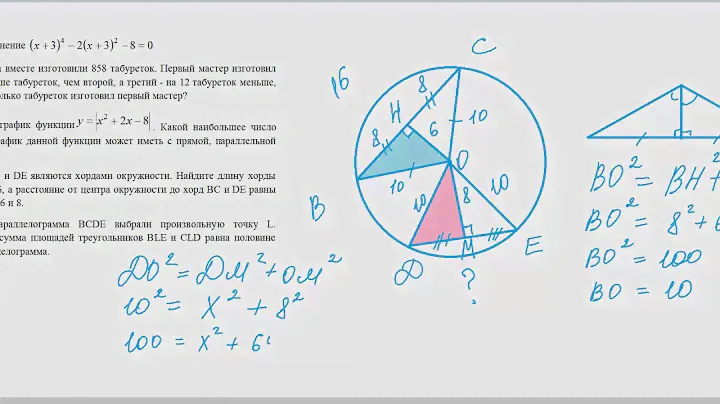 нение (x+3)⁴ − 2(x+3)² − 8 = 0
вместе изготовили 858 табуреток. Первый мастер изготовил
ше табуреток, чем второй, а третий - на 12 табуреток меньше,
олько табуреток изготовил первый мастер?
график функции y = |x² + 2x − 8|. Какой наибольшее число
афик данной функции может иметь с прямой, параллельной
и DE являются хордами окружности. Найдите длину хорды
6, а расстояние от центра окружности до хорд BC и DE равны
6 и 8.
араллелограмма BCDE выбрали произвольную точку L.
сумма площадей треугольников BLE и CLD равна половине
лелограмма.
16
C
8
H
6
10
8
O
10
10
10
8
B
D
M
E
?
DO² = DM² + OM²
10² = x² + 8²
100 = x² + 6
BO² = BH² +
BO² = 8² + 6
BO² = 100
BO = 10